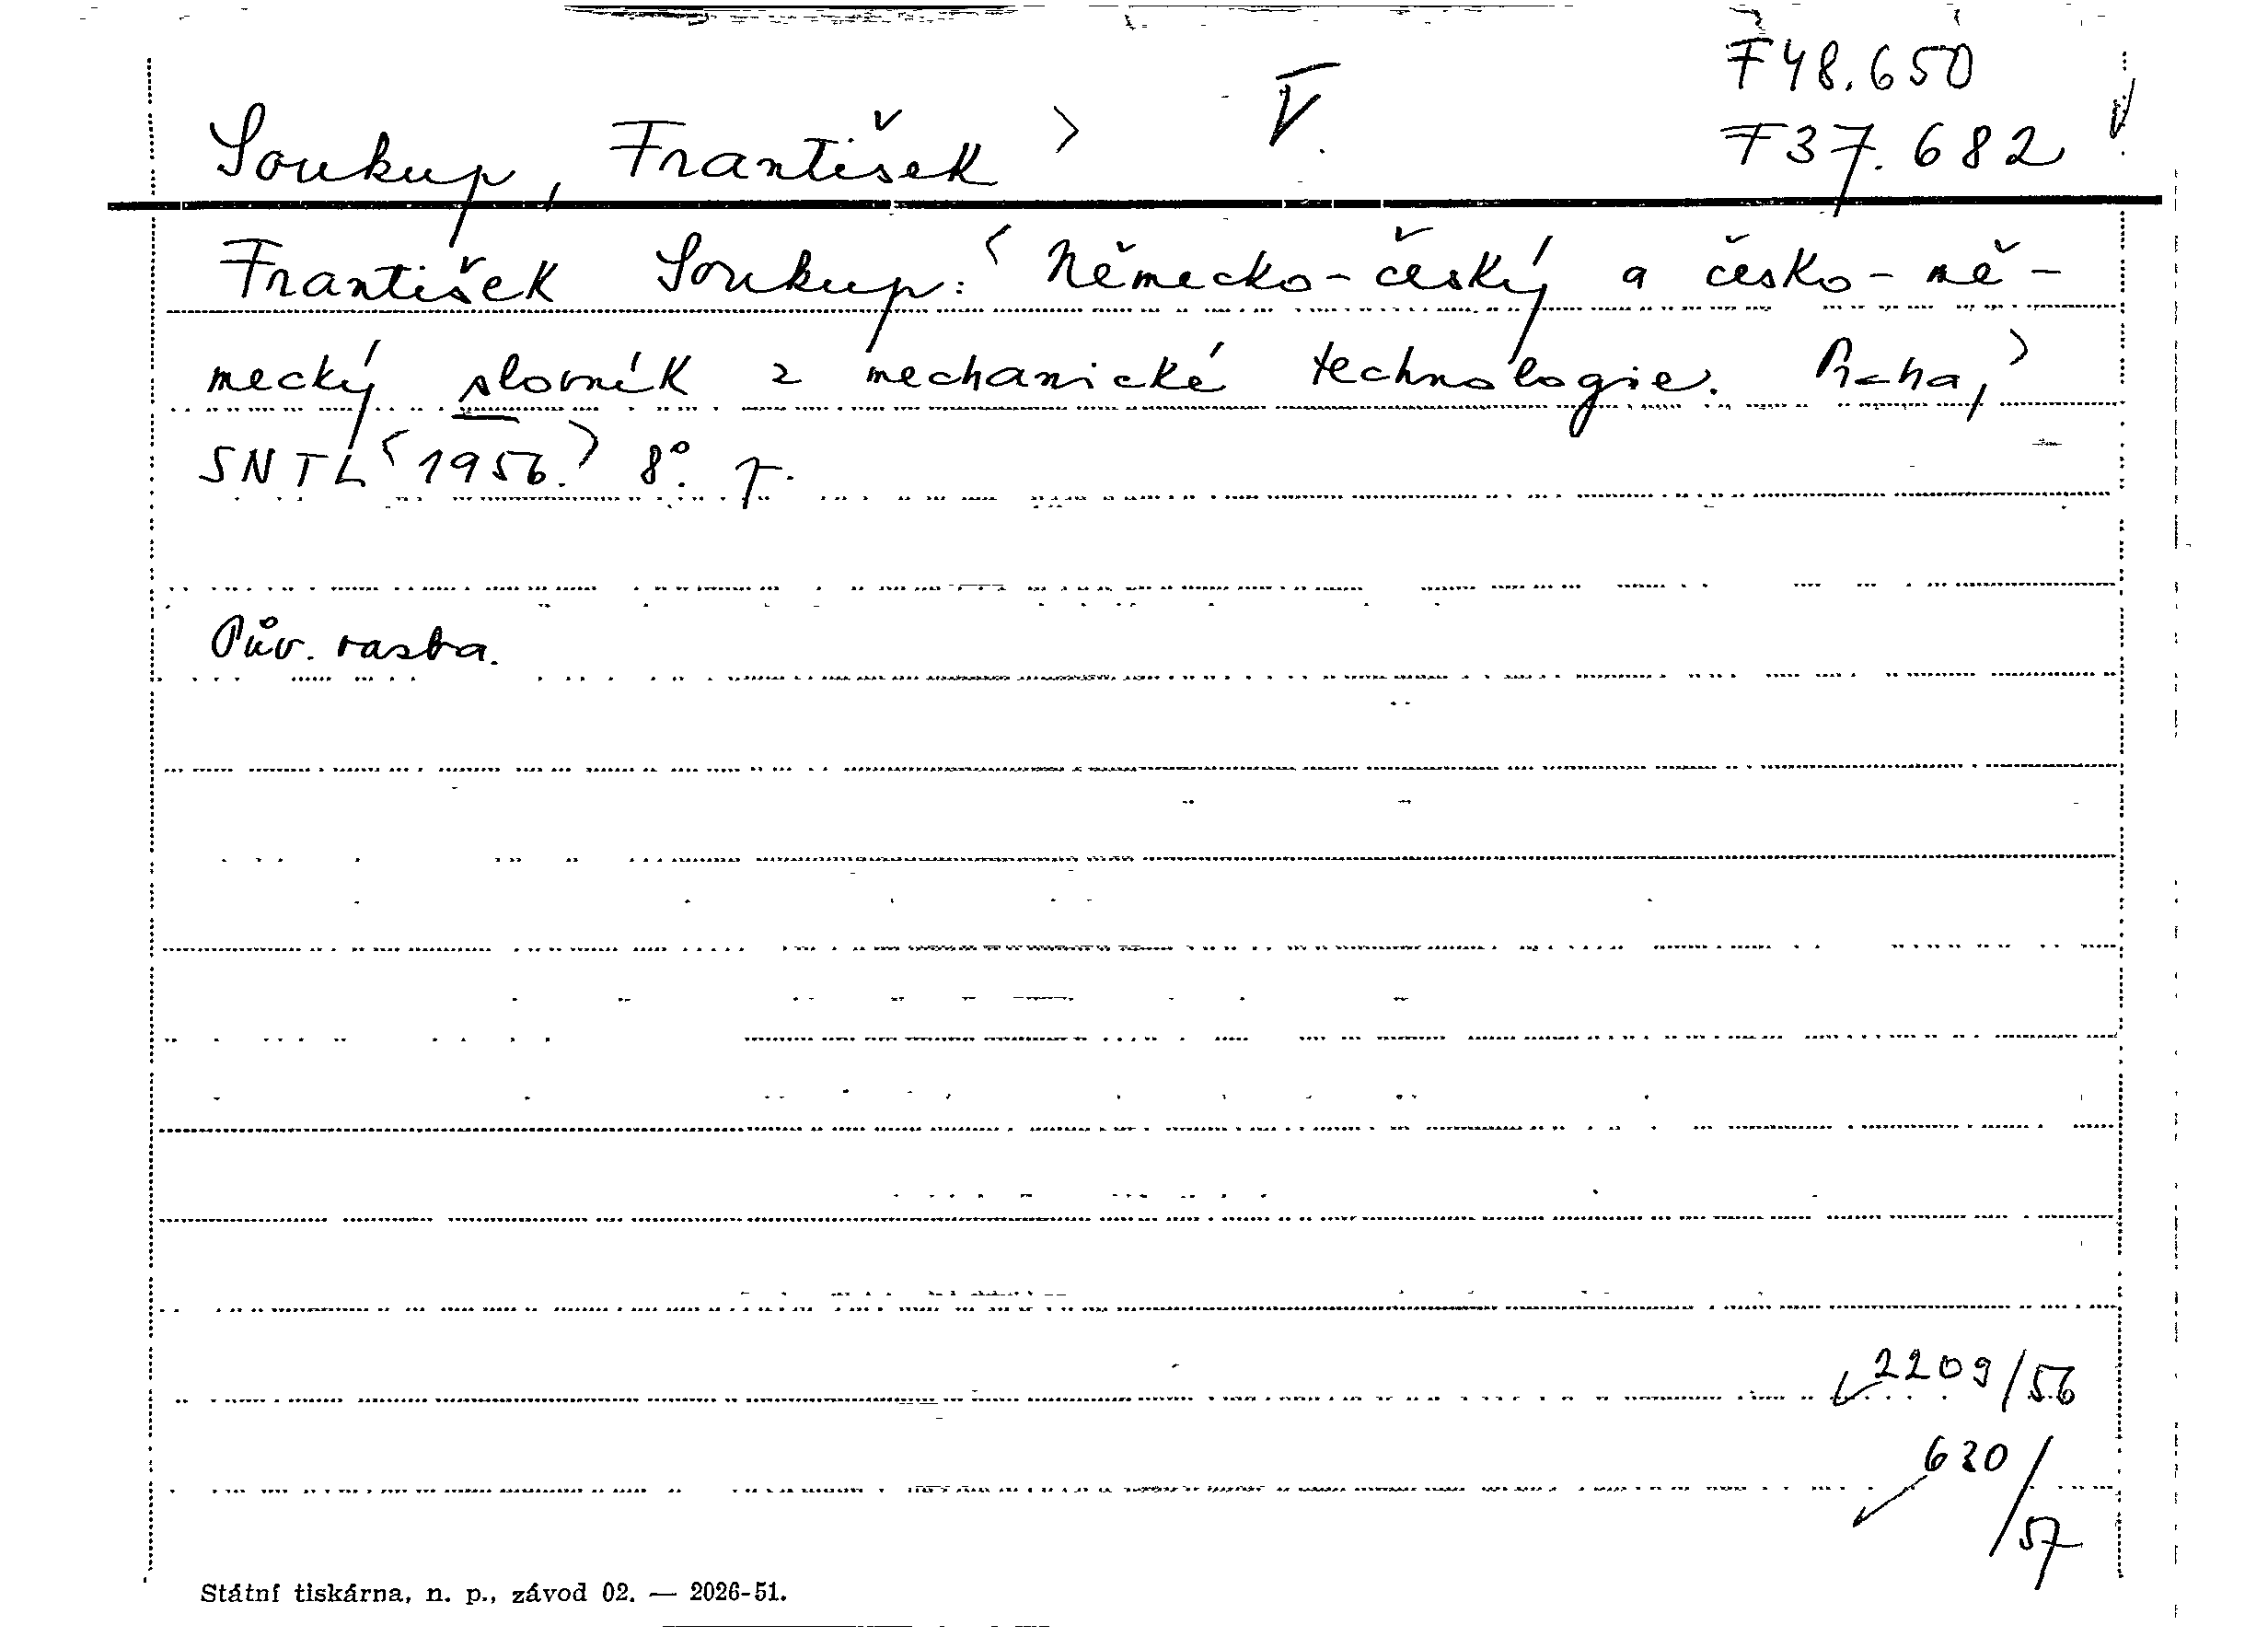 F 48.650
Soukup, František > V. F 37.682
František Soukup: < Německo-český a česko-ně-
mecký slovník z mechanické technologie. Praha, >
SNTL < 1956. > 8°. p.
Pův. vazba.
2209/56
620/57
Státní tiskárna, n. p., závod 02. — 2026-51.